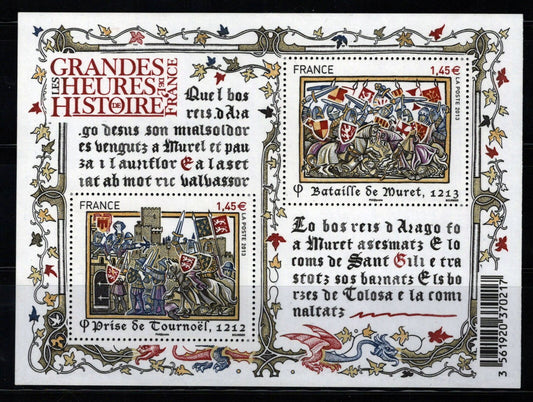 LES GRANDES
HEURES
DE L'HISTOIRE
DE FRANCE
Quel bos
reis d'Ara
go desus son mialsoldor
es vengutz a Murel et pau
za i l auriflor E a la set
rat ab mot ric valvassor
FRANCE 1,45€
LA POSTE 2013
φ Bataille de Muret, 1213
FRANCE 1,45€
LA POSTE 2013
φ Prise de Tournoël, 1212
Lo bos reis d'Arago fo
a Muret asesmatz E lo
coms de Sant Gili e tra
stotz sos barnatz Els bor
zes de Tolosa e la comi
naltatz
3 561920 370217